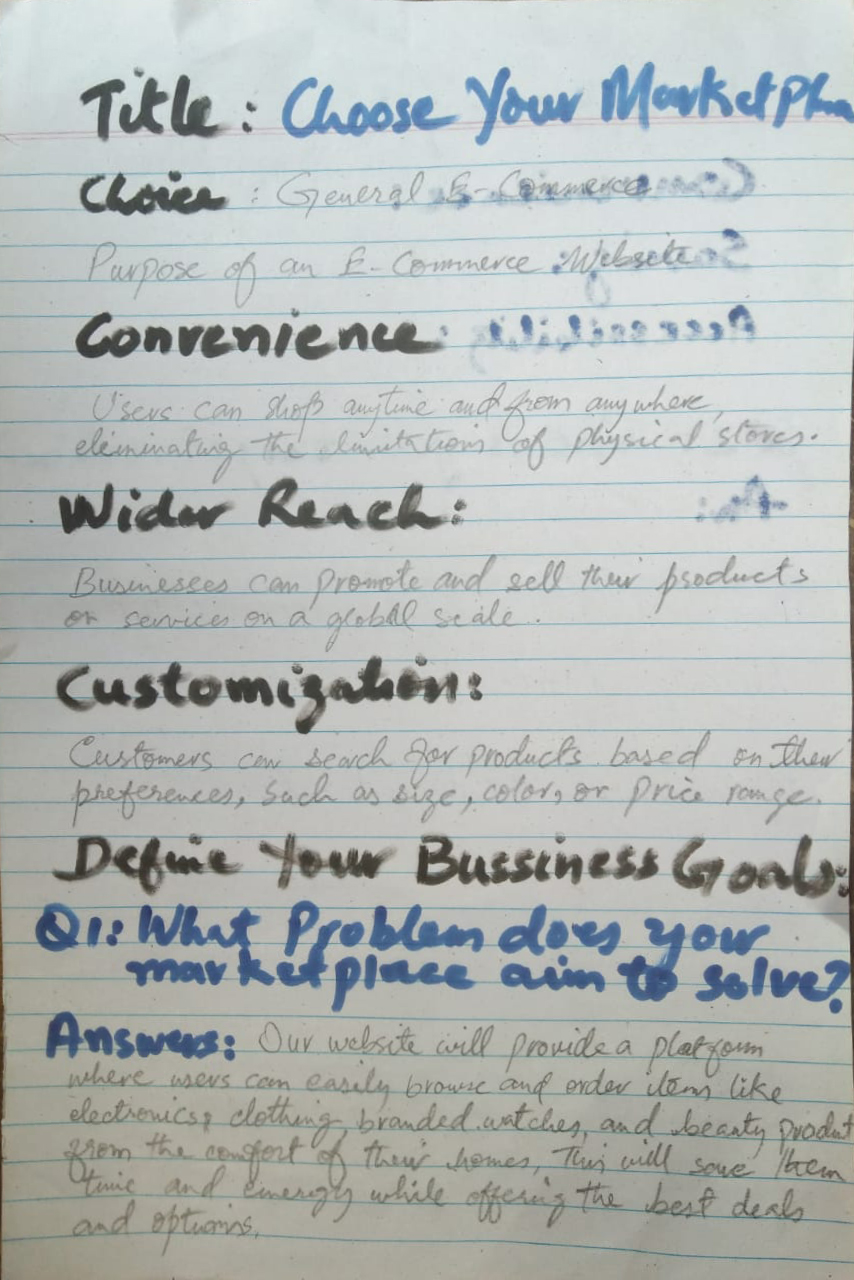 Title: Choose Your Marketpla
Choice: General E-Commerce
Purpose of an E-Commerce Website
Convenience:
Users can shop anytime and from anywhere,
eleminating the limitations of physical stores.
Wider Reach:
Businesses can promote and sell their products
or services on a global scale.
Customization:
Customers can search for products based on their
preferences, such as size, color, or price range.
Define Your Bussiness Goals:
Q1: What Problem does your
marketplace aim to solve?
Answers: Our website will provide a platform
where users can easily browse and order items like
electronics, clothing, branded watches, and beauty product
from the comfort of their homes, This will save them
time and energy while offering the best deals
and options.